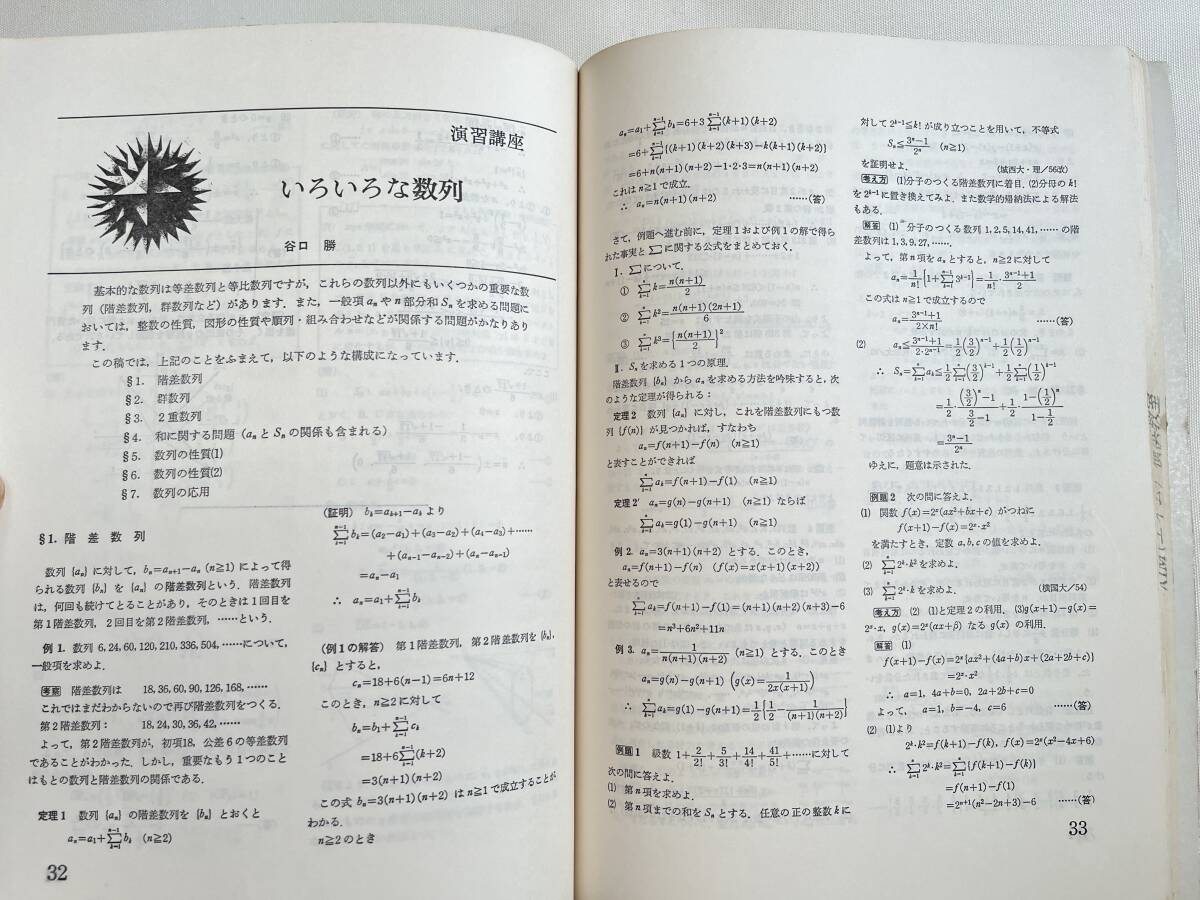 演習講座
いろいろな数列
谷口　勝
基本的な数列は等差数列と等比数列ですが，これらの数列以外にもいくつかの重要な数
列（階差数列，群数列など）があります．また，一般項 aₙ や n 部分和 Sₙ を求める問題に
おいては，整数の性質，図形の性質や順列・組み合わせなどが関係する問題がかなりあり
ます．
この稿では，上記のことをふまえて，以下のような構成になっています．
§1.　階差数列
§2.　群数列
§3.　2重数列
§4.　和に関する問題（aₙ と Sₙ の関係も含まれる）
§5.　数列の性質(1)
§6.　数列の性質(2)
§7.　数列の応用
§1. 階 差 数 列
数列 {aₙ} に対して，bₙ=aₙ₊₁−aₙ (n≧1) によって得
られる数列 {bₙ} を {aₙ} の階差数列という．階差数列
は，何回も続けてとることがあり，そのときは1回目を
第1階差数列，2回目を第2階差数列，……という．
例 1. 数列 6, 24, 60, 120, 210, 336, 504, ……について，
一般項を求めよ．
考察　階差数列は　18, 36, 60, 90, 126, 168, ……
これではまだわからないので再び階差数列をつくる．
第2階差数列：　18, 24, 30, 36, 42, ……
よって，第2階差数列が，初項18，公差6の等差数列
であることがわかった．しかし，重要なもう1つのこと
はもとの数列と階差数列の関係である．
定理 1　数列 {aₙ} の階差数列を {bₙ} とおくと
aₙ=a₁+∑[k=1, n−1] bₖ (n≧2)
32
（証明）　bₖ=aₖ₊₁−aₖ より
∑[k=1, n−1] bₖ=(a₂−a₁)+(a₃−a₂)+(a₄−a₃)+……
+(aₙ₋₁−aₙ₋₂)+(aₙ−aₙ₋₁)
=aₙ−a₁
∴ aₙ=a₁+∑[k=1, n−1] bₖ
（例1の解答）　第1階差数列，第2階差数列を {bₙ},
{cₙ} とすると，
cₙ=18+6(n−1)=6n+12
このとき，n≧2 に対して
bₙ=b₁+∑[k=1, n−1] cₖ
=18+6∑[k=1, n−1](k+2)
=3(n+1)(n+2)
この式 bₙ=3(n+1)(n+2) は n≧1 で成立することが
わかる．
n≧2 のとき
aₙ=a₁+∑[k=1, n−1] bₖ=6+3∑[k=1, n−1](k+1)(k+2)
=6+∑[k=1, n−1]{(k+1)(k+2)(k+3)−k(k+1)(k+2)}
=6+n(n+1)(n+2)−1·2·3=n(n+1)(n+2)
これは n≧1 で成立．
∴ aₙ=n(n+1)(n+2)　……（答）
さて，例題へ進む前に，定理1および例1の解で得ら
れた事実と ∑ に関する公式をまとめておく．
Ⅰ．∑ について．
① ∑[k=1, n] k=n(n+1)/2
② ∑[k=1, n] k²=n(n+1)(2n+1)/6
③ ∑[k=1, n] k³={n(n+1)/2}²
Ⅱ．Sₙ を求める1つの原理．
階差数列 {bₙ} から aₙ を求める方法を吟味すると，次
のような定理が得られる：
定理 2　数列 {aₙ} に対し，これを階差数列にもつ数
列 {f(n)} が見つかれば，すなわち
aₙ=f(n+1)−f(n) (n≧1)
と表すことができれば
∑[k=1, n] aₖ=f(n+1)−f(1) (n≧1)
定理 2′　aₙ=g(n)−g(n+1) (n≧1) ならば
∑[k=1, n] aₖ=g(1)−g(n+1) (n≧1)
例 2. aₙ=3(n+1)(n+2) とする．このとき，
aₙ=f(n+1)−f(n) (f(x)=x(x+1)(x+2))
と表せるので
∑[k=1, n] aₖ=f(n+1)−f(1)=(n+1)(n+2)(n+3)−6
=n³+6n²+11n
例 3. aₙ=1/n(n+1)(n+2) (n≧1) とする．このとき
aₙ=g(n)−g(n+1) (g(x)=1/2x(x+1))
∴ ∑[k=1, n] aₖ=g(1)−g(n+1)=1/2{1/2−1/(n+1)(n+2)}
例題 1　級数 1+2/2!+5/3!+14/4!+41/5!+……に対して
次の問に答えよ．
(1) 第 n 項を求めよ．
(2) 第 n 項までの和を Sₙ とする．任意の正の整数 k に
対して 2ᵏ⁻¹≦k! が成り立つことを用いて，不等式
Sₙ≦(3ⁿ−1)/2ⁿ (n≧1)
を証明せよ．　（城西大・理／56改）
考え方　(1)分子のつくる階差数列に着目．(2)分母の k!
を 2ᵏ⁻¹ に置き換えてみよ．また数学的帰納法による解法
もある．
解答　(1) 分子のつくる数列 1, 2, 5, 14, 41, ……の階
差数列は 1, 3, 9, 27, ……．
よって，第 n 項を aₙ とすると，n≧2 に対して
aₙ=1/n![1+∑[k=1, n−1] 3ᵏ⁻¹]=1/n!·(3ⁿ⁻¹+1)/2
この式は n≧1 で成立するので
aₙ=(3ⁿ⁻¹+1)/(2×n!)　……（答）
(2) aₙ≦(3ⁿ⁻¹+1)/(2·2ⁿ⁻¹)=1/2(3/2)ⁿ⁻¹+1/2(1/2)ⁿ⁻¹
∴ Sₙ=∑[k=1, n] aₖ≦1/2∑[k=1, n](3/2)ᵏ⁻¹+1/2∑[k=1, n](1/2)ᵏ⁻¹
=1/2·((3/2)ⁿ−1)/(3/2−1)+1/2·(1−(1/2)ⁿ)/(1−1/2)
=(3ⁿ−1)/2ⁿ
ゆえに，題意は示された．
例題 2　次の問に答えよ．
(1) 関数 f(x)=2ˣ(ax²+bx+c) がつねに
f(x+1)−f(x)=2ˣ·x²
を満たすとき，定数 a, b, c の値を求めよ．
(2) ∑[k=1, n] 2ᵏ·k² を求めよ．
(3) ∑[k=1, n] 2ᵏ·k を求めよ．　（横国大／54）
考え方　(2) (1)と定理2の利用．(3)g(x+1)−g(x)=
2ˣ·x, g(x)=2ˣ(αx+β) なる g(x) の利用．
解答　(1)
f(x+1)−f(x)=2ˣ{ax²+(4a+b)x+(2a+2b+c)}
=2ˣ·x²
∴ a=1, 4a+b=0, 2a+2b+c=0
よって，　a=1, b=−4, c=6　……（答）
(2) (1)より
2ᵏ·k²=f(k+1)−f(k), f(x)=2ˣ(x²−4x+6)
∴ ∑[k=1, n] 2ᵏ·k²=∑[k=1, n]{f(k+1)−f(k)}
=f(n+1)−f(1)
=2ⁿ⁺¹(n²−2n+3)−6　……（答）
33